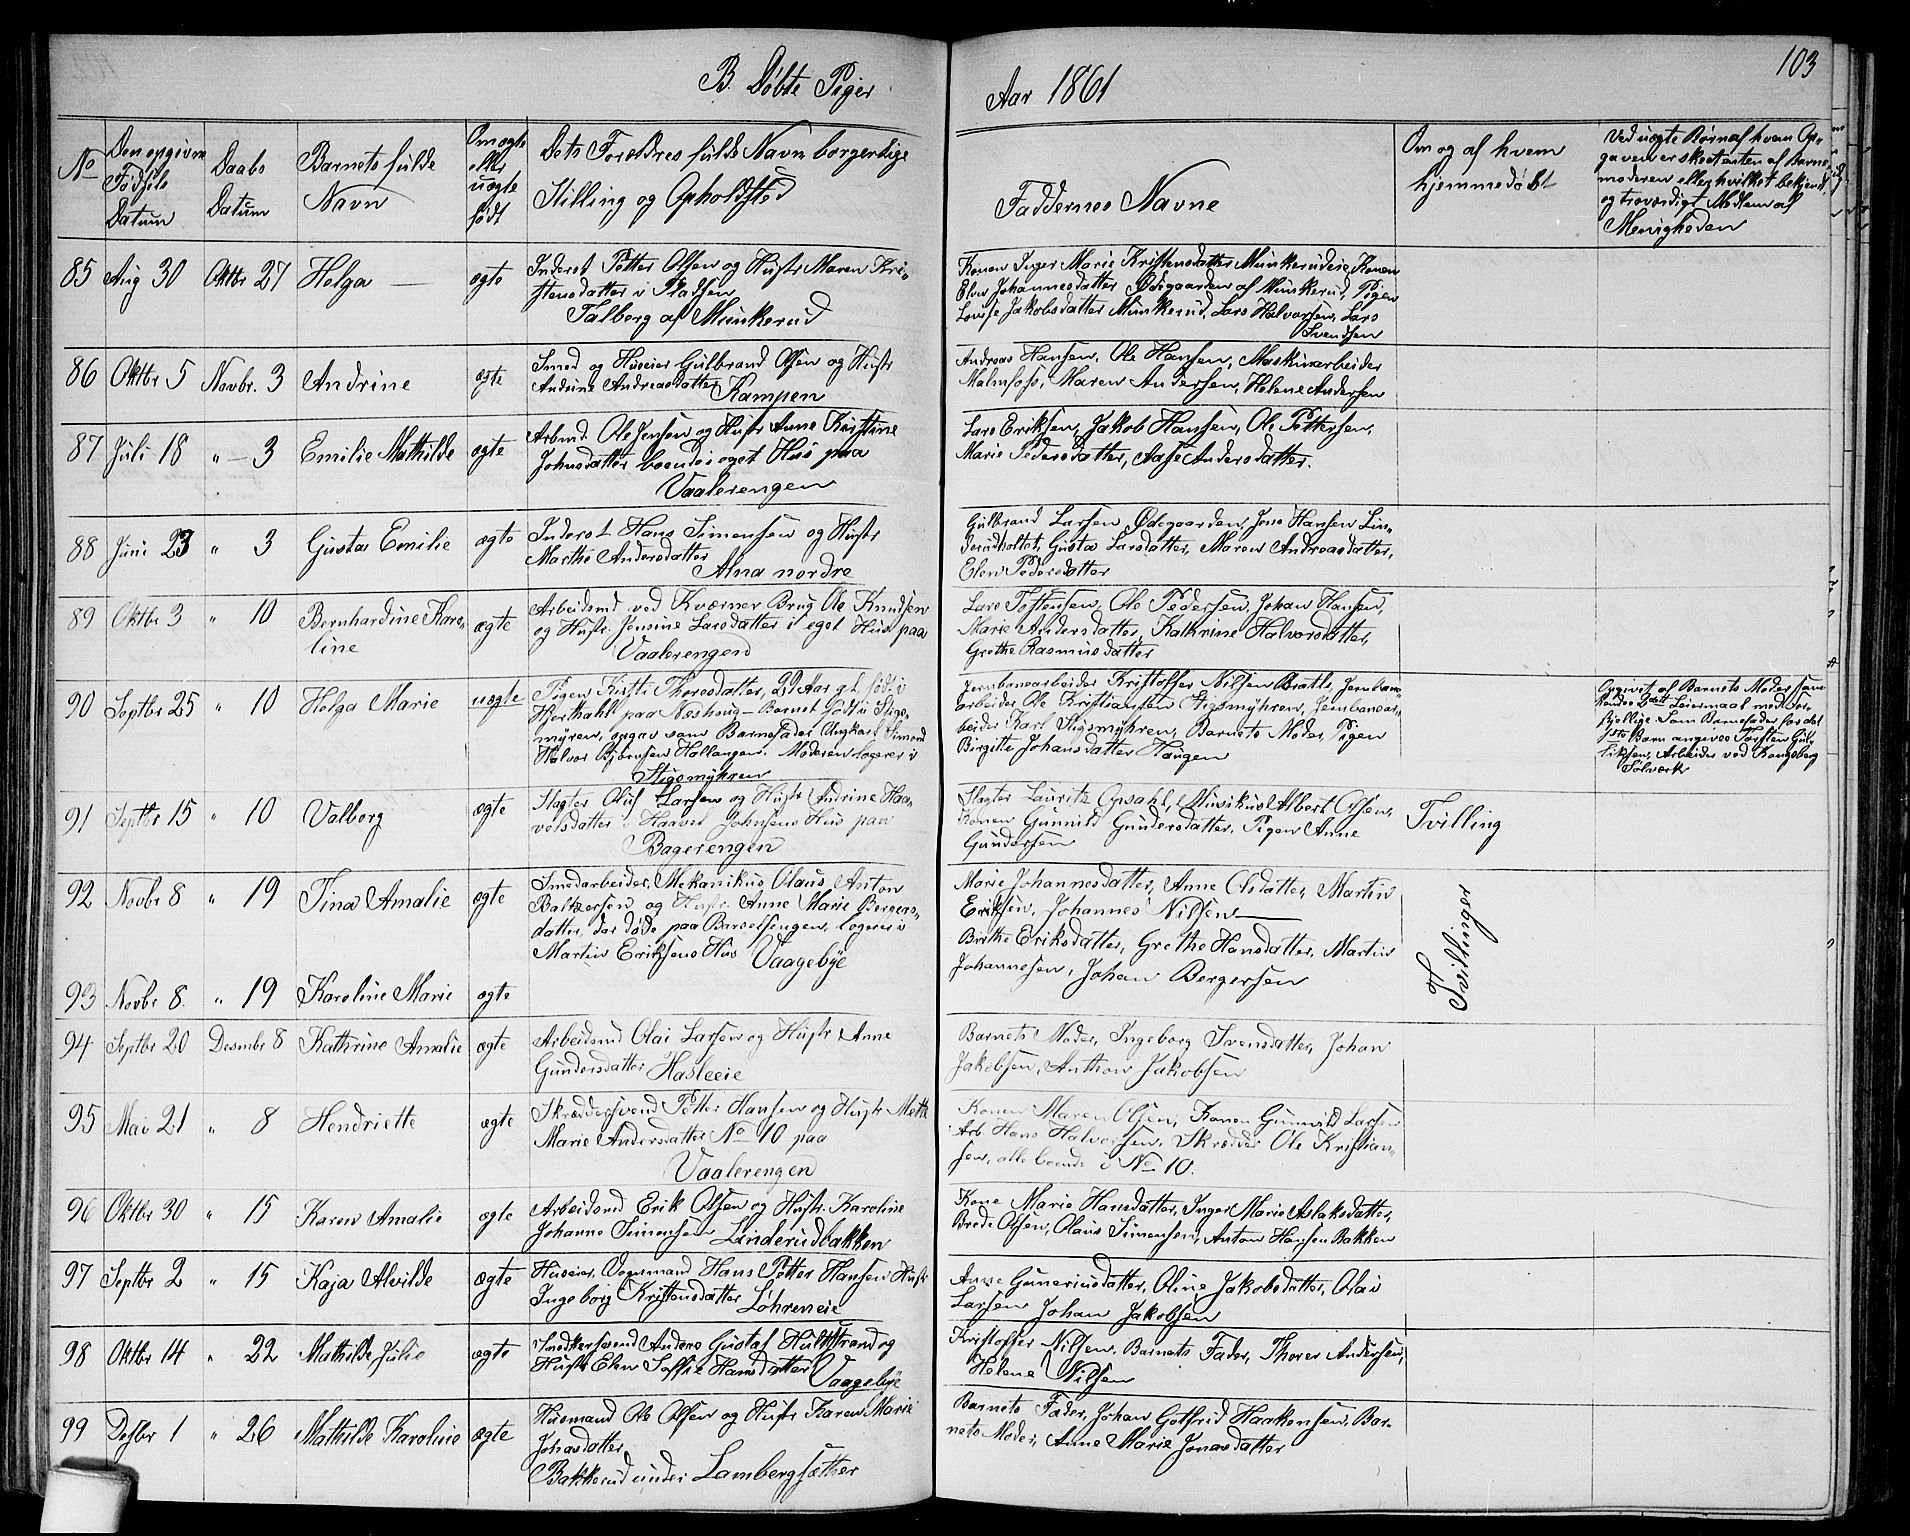 103
B. Døbte Piger
Aar 1861
No
Den opgivne
Fødsels
Datum
Daabs
Datum
Barnets fulde
Navn
Om ægte
eller
uægte
født
Dets Forældres fulde Navn borgerlige
Stilling og Opholdsted
Faddernes Navne
Om og af hvem
hjemmedøbt
Ved uægte Børn af hvem Op-
gaven er skeet enten af Barne-
moderen eller hvilket bekjendt
og troværdigt Medlem af
Menigheden
85 Aug 30 Oktbr 27 Helga — ægte
Inderst Petter Olsen og Hustr Maren Kri-
stensdatter i Pladsen
Talberg af Munkerud
Konen Inger Marie Kristensdatter Munkerudeie, Konen
Elen Johannesdatter Ødegaarden af Munkerud, Pigen
Lovise Jakobsdatter Munkerud, Lars Halvorsen, Lars
Svendsen
86 Oktbr 5 Novbr. 3 Andrine ægte
Smed og Huseier Gulbrand Olsen og Hustr
Andrine Andreasdatter Kampen
Andreas Hansen, Ole Hansen, Maskinarbeider
Malmfoss, Maren Andersen, Helene Andersen
87 Juli 18 " — 3 Emilie Mathilde ægte
Arbmd. Ole Jensen og Hustr Anne Kristine
Johnsdatter boende i eget Hus paa
Vaalerengen
Lars Eriksen, Jakob Hansen, Ole Pettersen,
Marie Pedersdatter, Aase Andersdatter.
88 Juni 23 " 3 Gusta Emilie ægte
Inderst Hans Simensen og Hustr
Marthe Andersdatter
Alna nordre
Gulbrand Larsen Ødegaarden, Jens Hansen Lin-
derudholtet, Gusta Larsdatter, Maren Andreasdatter,
Elen Pedersdatter
89 Oktbr 3 " 10 Bernhardine Karo-
line ægte
Arbeidsmd ved Kværner Brug Ole Knudsen
og Hustr. Jensine Larsdatter i eget Hus paa
Vaalerengen
Lars Tostensen, Ole Pedersen, Johan Hansen,
Marie Andersdatter, Kathrine Halvorsdatter,
Grethe Rasmusdatter
90 Septbr 25 " 10 Helga Marie uægte
Pigen Kirsti Thoresdatter, 29 Aar gl. født i
Hjerthahl paa Neshoug — Barnet født i Stigs-
myren, opgav som Barnefader Ungkarl Simond
Halvor Bjørnsen Hollangen. Moderen logerer i
Stigsmyhren
Jernbanearbeider Kristoffer Nilsen Bratli, Jernban-
arbeider Ole Kristiansen Stigsmyhren, Jernbanear-
beider Karl Stigsmyhren, Barnets Moder, Pigen
Birgitte Johansdatter Haugen
Opgivet af Barnets Moder som
hendes 2det Leiermaal med for-
skjellige. Som Barnefader for det
1ste Barn angives Torsten Gul-
liksen, Arbeider ved Kongsberg
Sølvværk
91 Septbr 15 " 10 Valborg ægte
Slagter Oluf Larsen og Hustr Andrine Haa-
velsdatter i Haavel Johnsens Hus paa
Bagerengen
Slagter Lauritz Opsahl, Musikus Albert Olsen,
Konen Gunnild Gundersdatter, Pigen Anne
Gundersen
Tvilling
92 Novbr 8 " 19 Tina Amalie ægte
Smedarbeider, Mekanikus Olaus Anton
Baltzersen og Hustr. Anne Marie Bergers-
datter, der døde paa Barselsengen, logerer i
Martin Eriksens Hus Vaagebye
Marie Johannesdatter, Anne Olsdatter, Martin
Eriksen, Johannes Nilsen —
Birthe Eriksdatter, Grethe Hansdatter, Martin
Johannesen, Johan Bergersen
Tvillinger
93 Novbr 8. " 19 Karoline Marie ægte
94 Septbr 20 Desembr 8 Kathrine Amalie ægte
Arbeidsmd Olai Larsen og Hustr Anne
Gundersdatter Hasleeie
Barnets Moder, Ingeborg Svensdatter, Johan
Jakobsen, Anthon Jakobsen
95 Mai 21 " 8 Hendriette ægte
Skræddersvend Petter Hansen og Hustr Mette
Marie Andersdatter No 10 paa
Vaalerengen
Konen Maren Olsen, Konen Gunnild Larsen
Arb Hans Halvorsen, Skræder Ole Kristian-
sen, alle boende i No 10.
96 Oktbr 30 " 15 Karen Amalie ægte
Arbeidsmd Erik Olsen og Hustr. Karoline
Johanne Simensen Linderudbakken
Kone Marie Hansdatter, Inger Marie Aslaksdatter,
Brede Olsen, Olaus Simensen, Anton Hansen Bakken
97 Septbr 2 " 15 Kaja Alvilde ægte
Huseier, Vognmand Hans Petter Hansen Hustr
Ingeborg Kristensdatter Løhreneie
Anne Gunneriusdatter, Oline Jakobsdatter, Olai
Larsen Johan Jakobsen
98 Oktbr 14 " 22 Mathilde Julie ægte
Snedkersvend Anders Gustaf Hultstrand og
Hustr Elen Soffie Hansdatter Vaagebye
Kristoffer Nilsen, Barnets Fader, Thores Andersen,
Helene Nilsen
99 Desbr 1 " 26 Mathilde Karoline ægte
Husmand Ole Olsen og Hustr Karen Marie
Johasdatter
Bakkerud under Lambergsæther
Barnets Fader, Johan Gotfrid Haakensen, Bar-
nets Moder, Anne Marie Jonasdatter